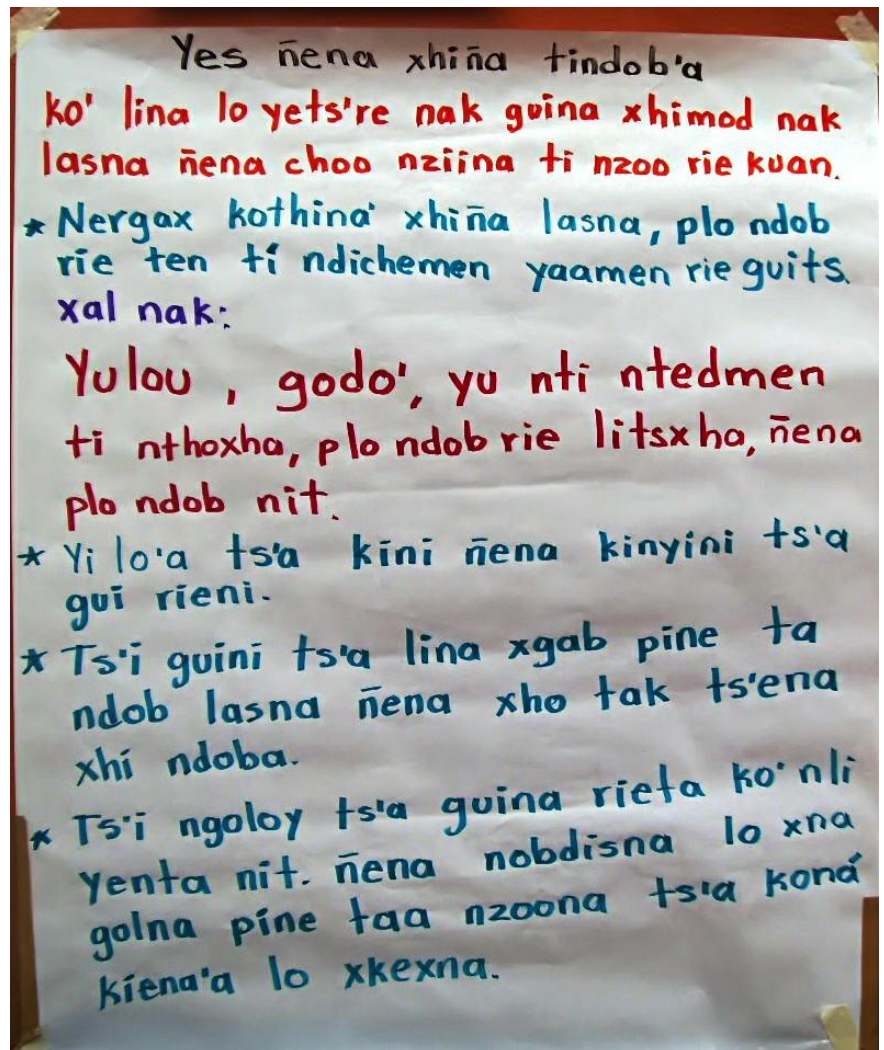 Yes ñena xhiña tindob'a
ko' lina lo yets're nak guina xhimod nak
lasna ñena choo nziina ti nzoo rie kuan.
* Nergax kothina' xhiña lasna, plo ndob
rie ten tí ndichemen yaamen rie guits.
xal nak:
Yulou , godo', yu nti ntedmen
ti nthoxha, plo ndob rie litsxha, ñena
plo ndob nit.
* Yi lo'a ts'a kini ñena kinyini ts'a
gui rieni.
* Ts'i guini ts'a lina xgab pine ta
ndob lasna ñena xho tak ts'ena
xhi ndoba.
* Ts'i ngoloy ts'a guina rieta ko' nli
yenta nit. ñena nobdisna lo xna
golna pine taa nzoona ts'a koná
kiena'a lo xkexna.